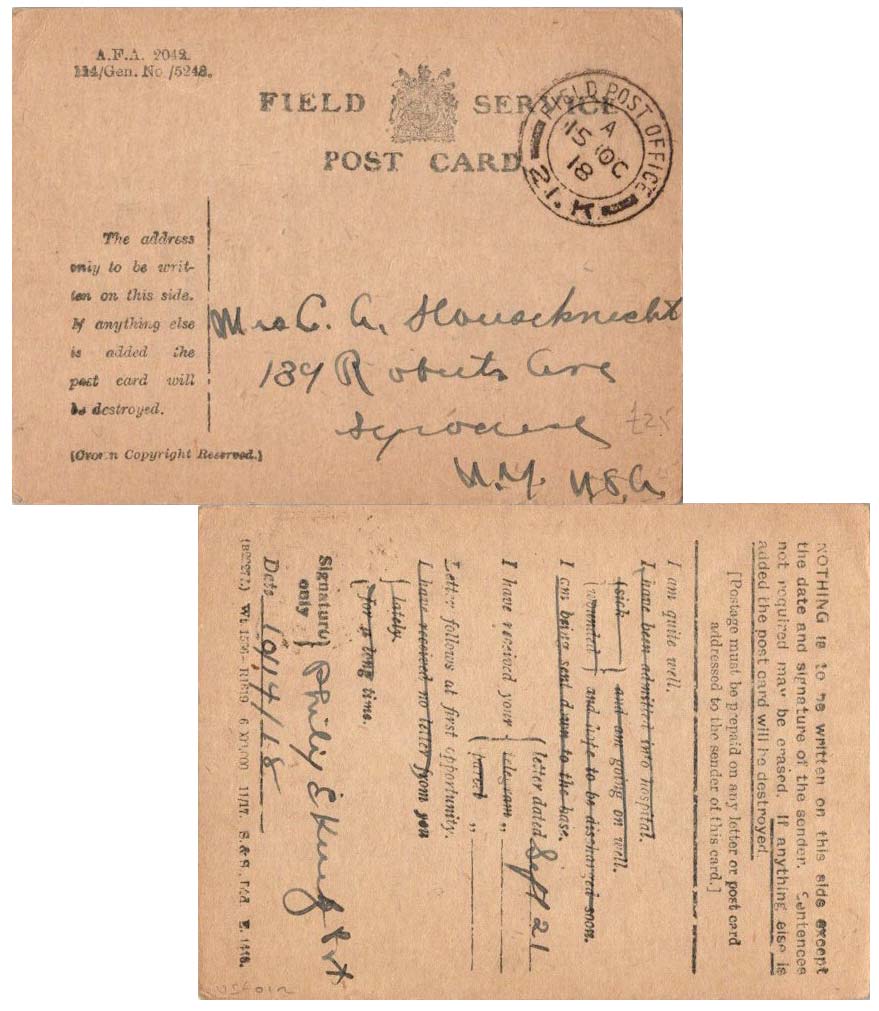 A.F.A. 2042.
114/Gen. No /5248.
FIELD SERVICE
POST CARD
FIELD POST OFFICE
A
15 OC
18
21.K.
The address
only to be writ-
ten on this side.
If anything else
is added the
post card will
be destroyed.
(Crown Copyright Reserved.)
Mrs C. A. Houseknecht
189 Roberts Ave
Syracuse
N.Y. U.S.A.
£25
NOTHING is to be written on this side except
the date and signature of the sender. Sentences
not required may be erased. If anything else is
added the post card will be destroyed.
[Postage must be prepaid on any letter or post card
addressed to the sender of this card.]
I am quite well.
I have been admitted into hospital.
{sick } and am going on well.
{wounded} and hope to be discharged soon.
I am being sent down to the base.
I have received your { letter dated Sept 21
telegram „
parcel „
Letter follows at first opportunity.
I have received no letter from you
{ lately.
{ for a long time.
Signature
only } Philip E King
Date 1914/18
11/17. S. & S., Ltd. E. 1448.